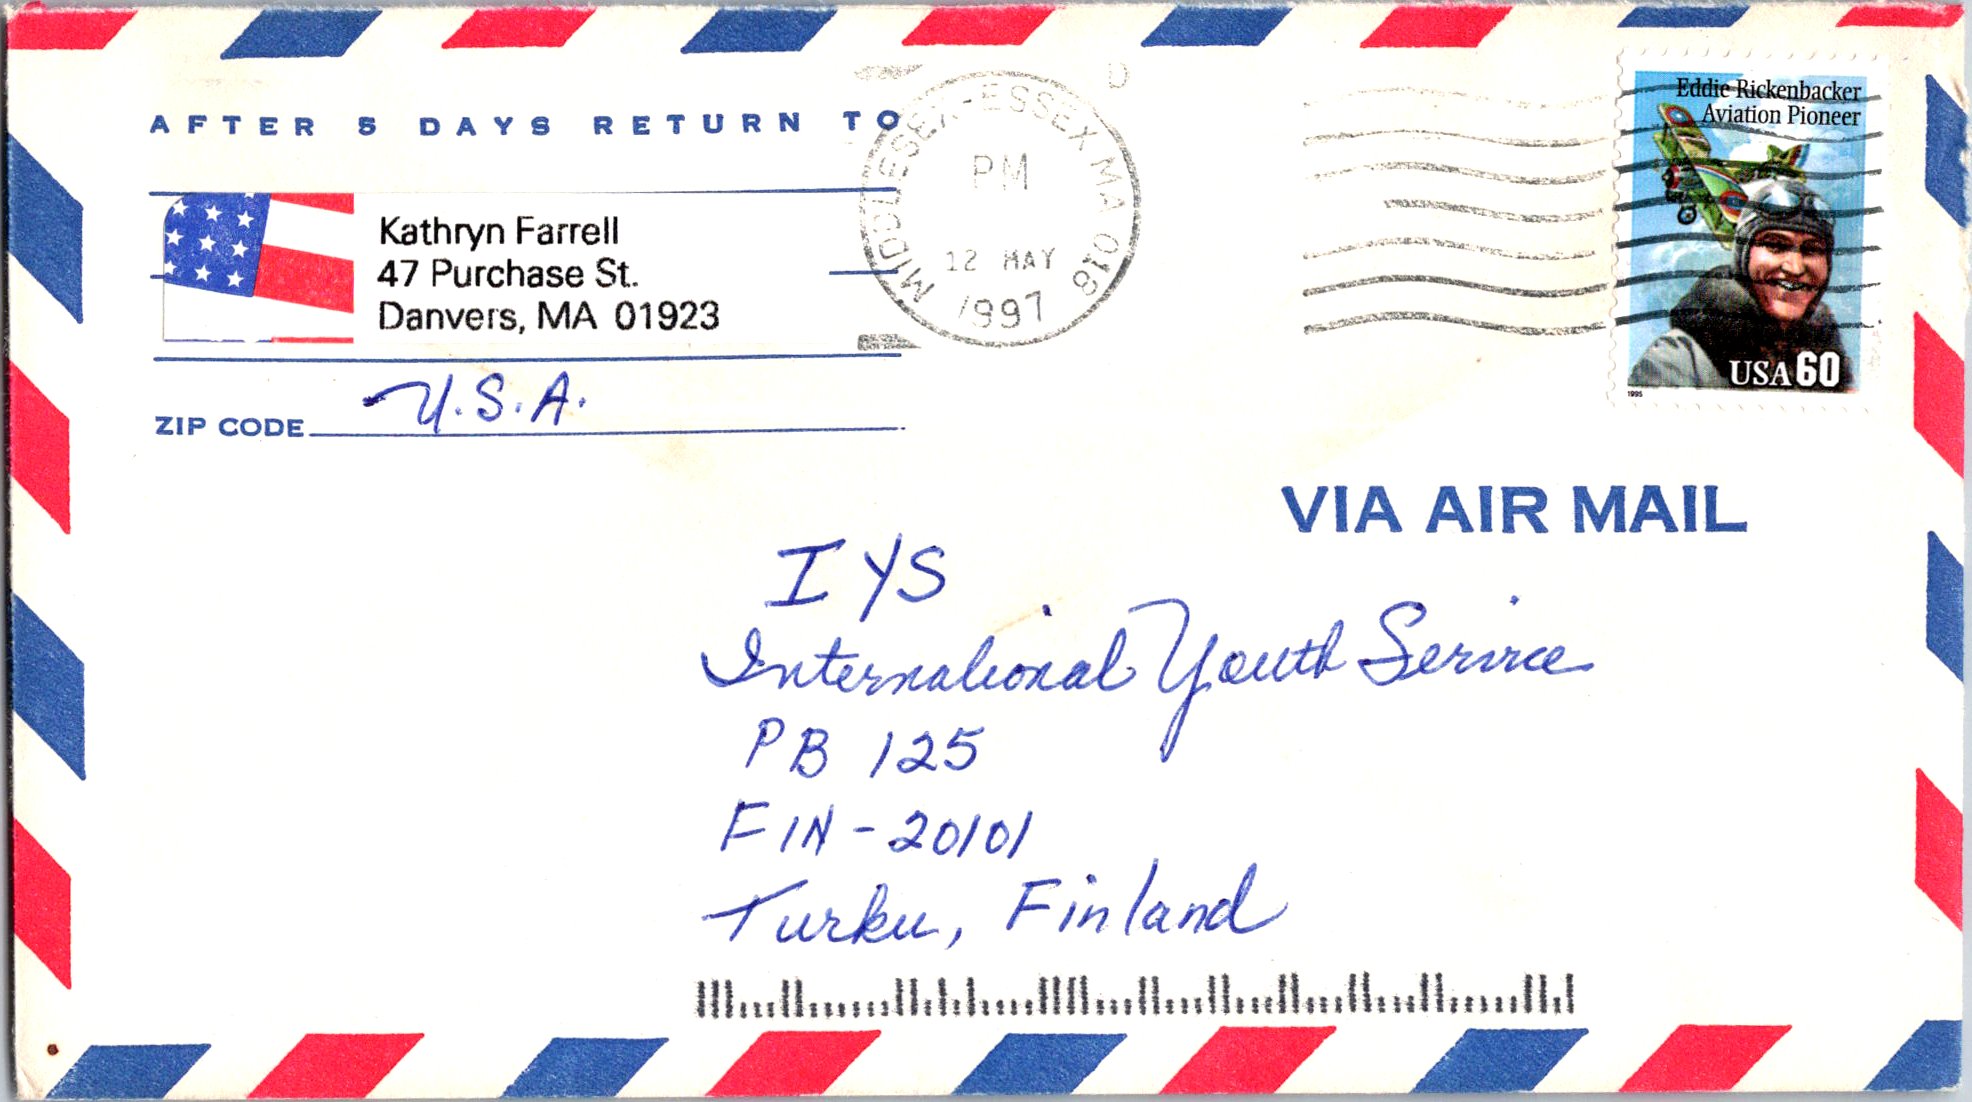 AFTER 5 DAYS RETURN TO
Kathryn Farrell
47 Purchase St.
Danvers, MA 01923
U.S.A.
ZIP CODE
MIDDLESEX-ESSEX MA 018
PM
12 MAY
1997
Eddie Rickenbacker
Aviation Pioneer
USA 60
1995
VIA AIR MAIL
IYS
International Youth Service
PB 125
FIN-20101
Turku, Finland